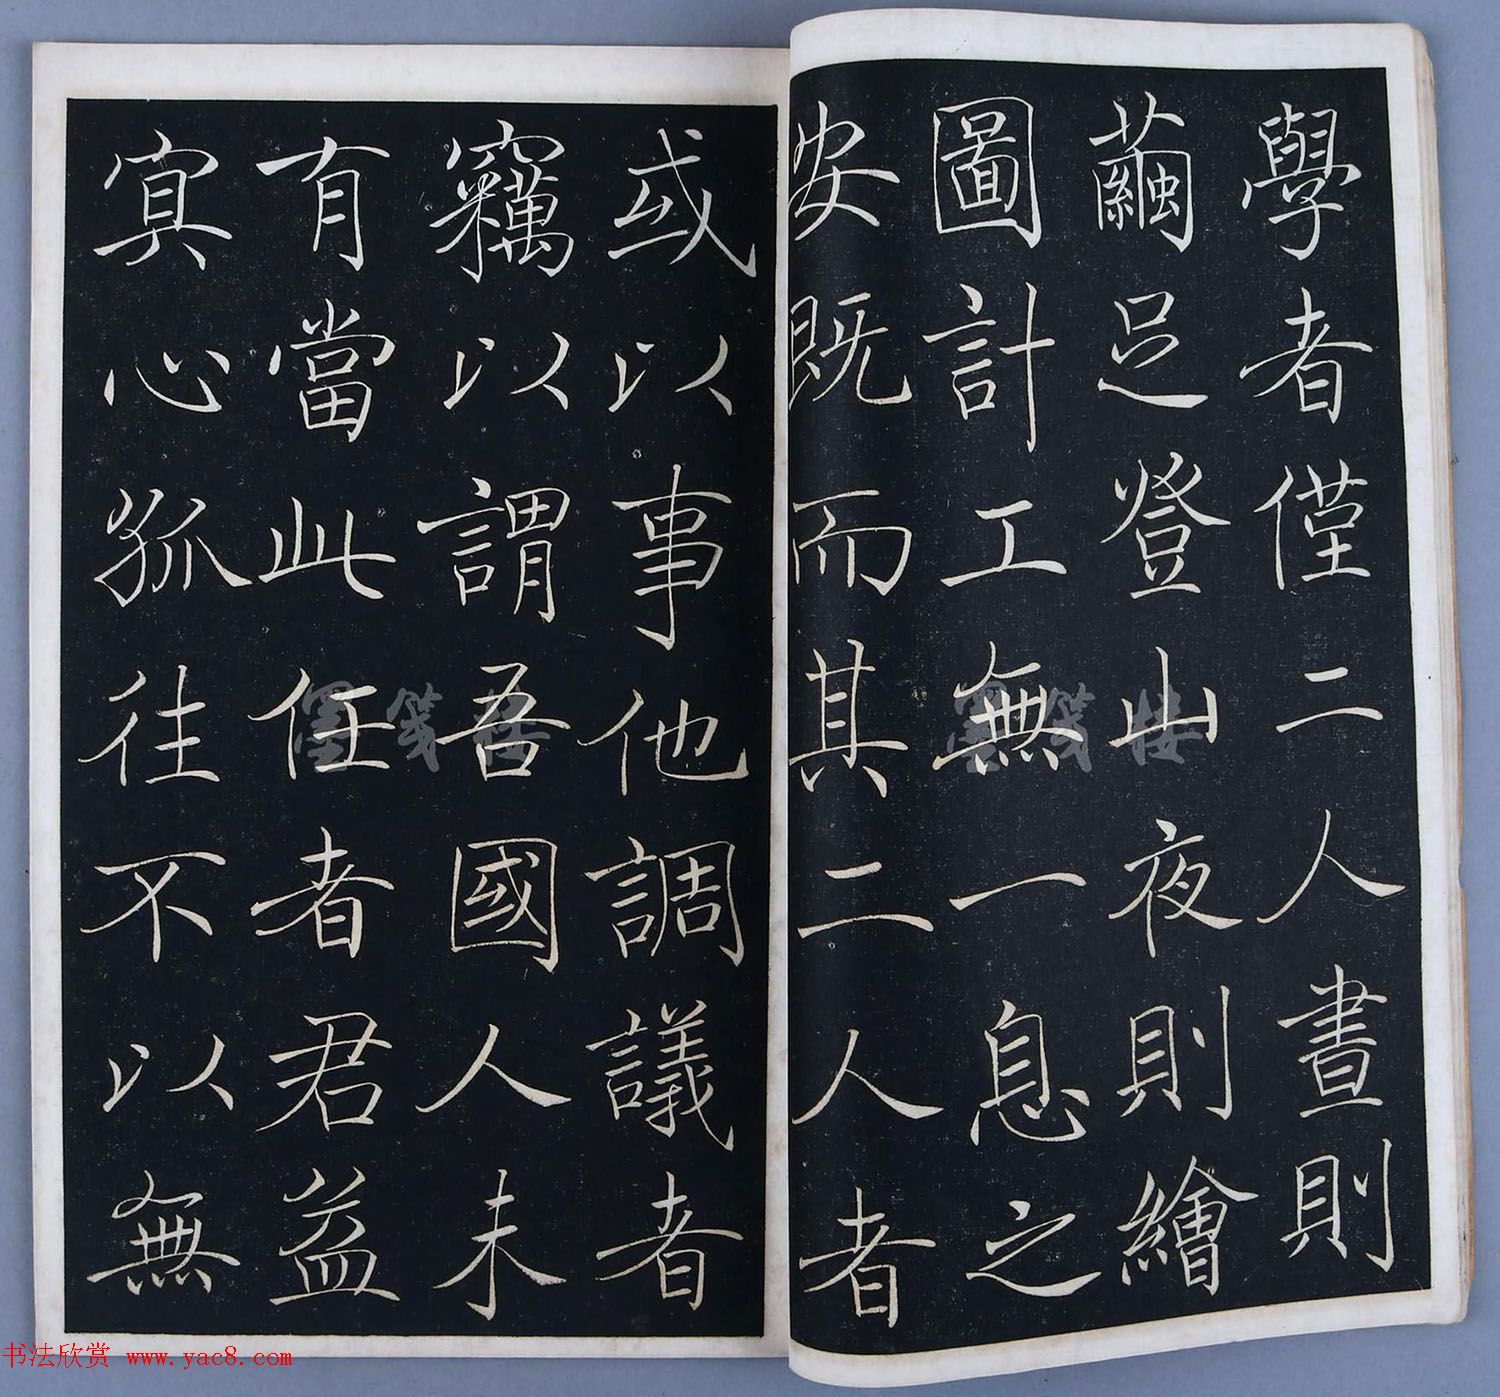 學者僅二人晝則
繭足登山夜則繪
圖計工無一息之
安既而其二人者
或以事他調議者
竊以謂吾國人未
有當此任者君益
寘心孤往不以無
墨箋楼
墨箋楼
书法欣赏 www.yac8.com